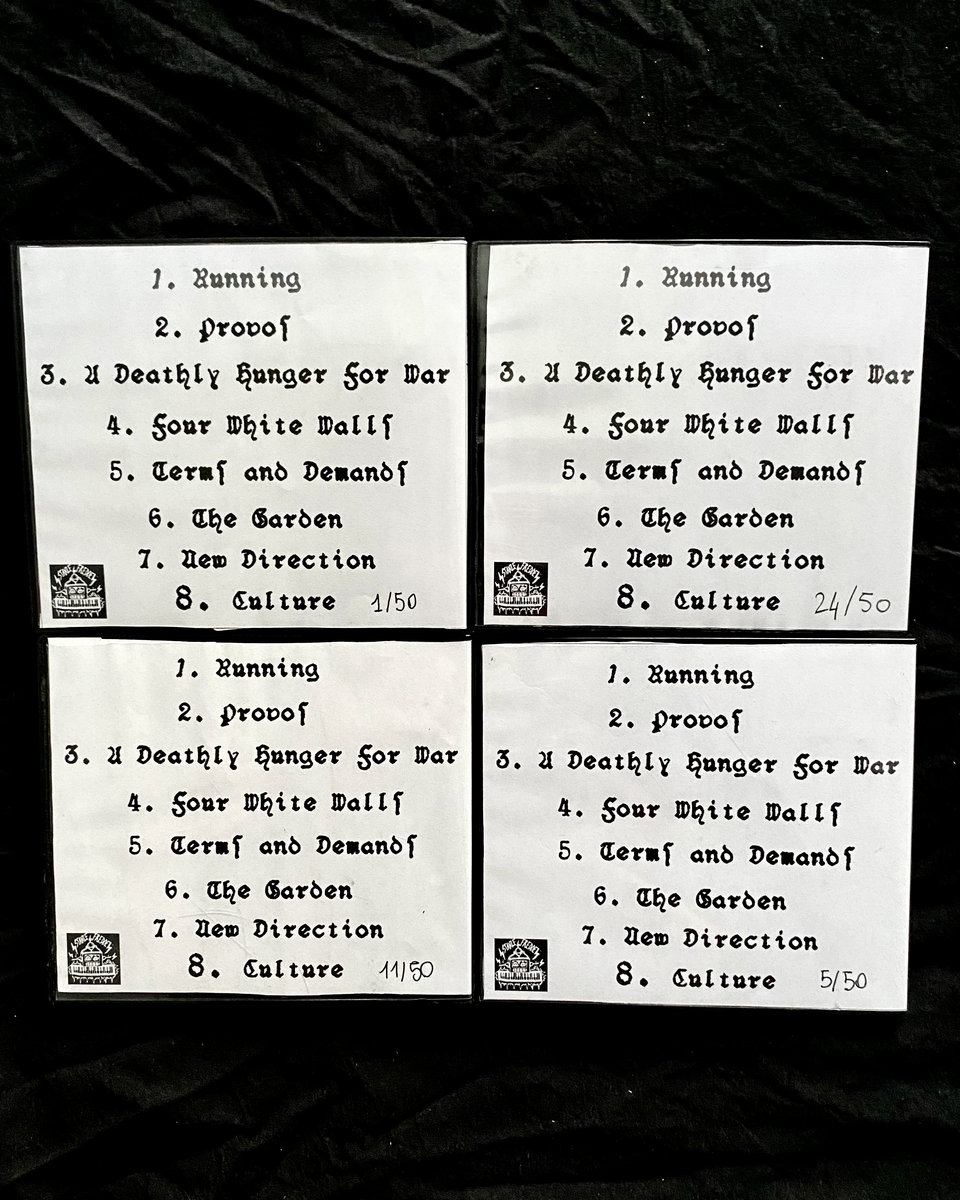 1. Running
2. Provoſ
3. A Deathly Hunger For War
4. Four White Wallſ
5. Termſ and Demandſ
6. The Garden
7. New Direction
8. Culture 1/50
1. Running
2. Provoſ
3. A Deathly Hunger For War
4. Four White Wallſ
5. Termſ and Demandſ
6. The Garden
7. New Direction
8. Culture 24/50
1. Running
2. Provoſ
3. A Deathly Hunger For War
4. Four White Wallſ
5. Termſ and Demandſ
6. The Garden
7. New Direction
8. Culture 11/50
1. Running
2. Provoſ
3. A Deathly Hunger For War
4. Four White Wallſ
5. Termſ and Demandſ
6. The Garden
7. New Direction
8. Culture 5/50